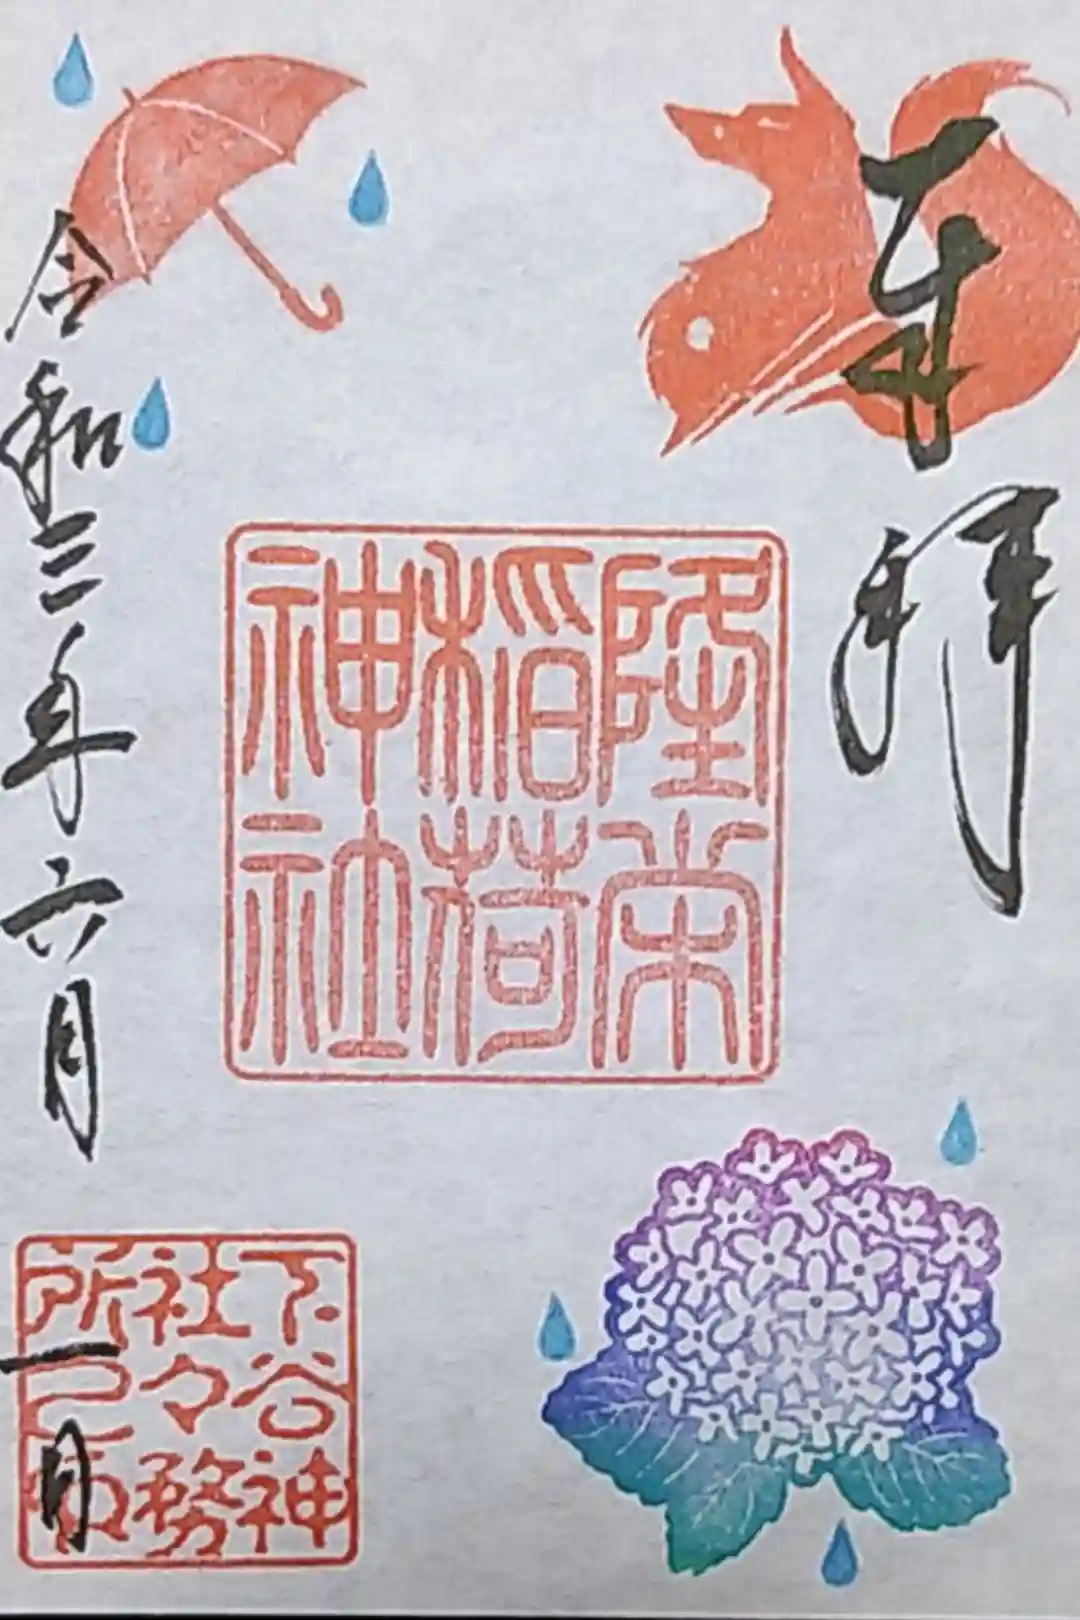 奉拝
隆栄
稲荷
神社
令和三年六月一日
下谷神
社々務
所之印